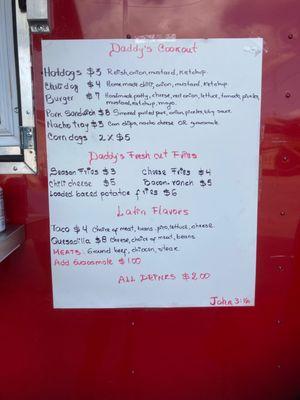 Daddy's Cookout
Hotdogs $5 Relish, onion, mustard, Ketchup
Chili dog $4 Homemade chili, onion, mustard, Ketchup.
Burger $7 Handmade patty, cheese, red onion, lettuce, tomato, pickles,
mustard, ketchup, mayo.
Pork Sandwich $8 Smoked pulled pork, onion, pickles, bbq sauce
Nacho tray $3 Corn chips, nacho cheese OR guacamole.
Corn dogs 2 x $5
Daddy's Fresh cut Fries
Season Fries $3 Cheese Fries $4
Chili cheese $5 Bacon-ranch $5
Loaded baked potatoe fries $6
Latin Flavors
Taco $4 Choice of meat, beans, pico, lettuce, cheese
Quesadilla $8 Cheese, choice of meat, beans
MEATS: Ground beef, chicken, steak
Add Guacamole $1.00
ALL DRINKS $2.00
John 3:16